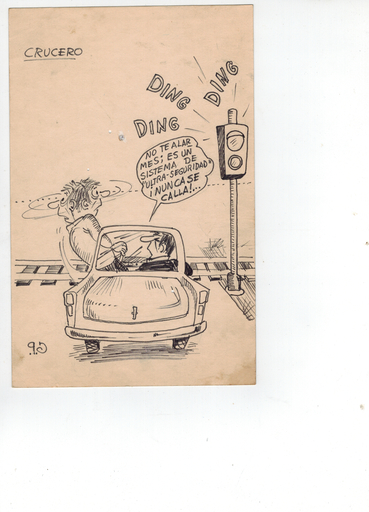 CRUCERO
DING
DING
DING
NO TE ALAR
MES; ES UN
SISTEMA DE
"ULTRA-SEGURIDAD"
¡NUNCA SE
CALLA!...